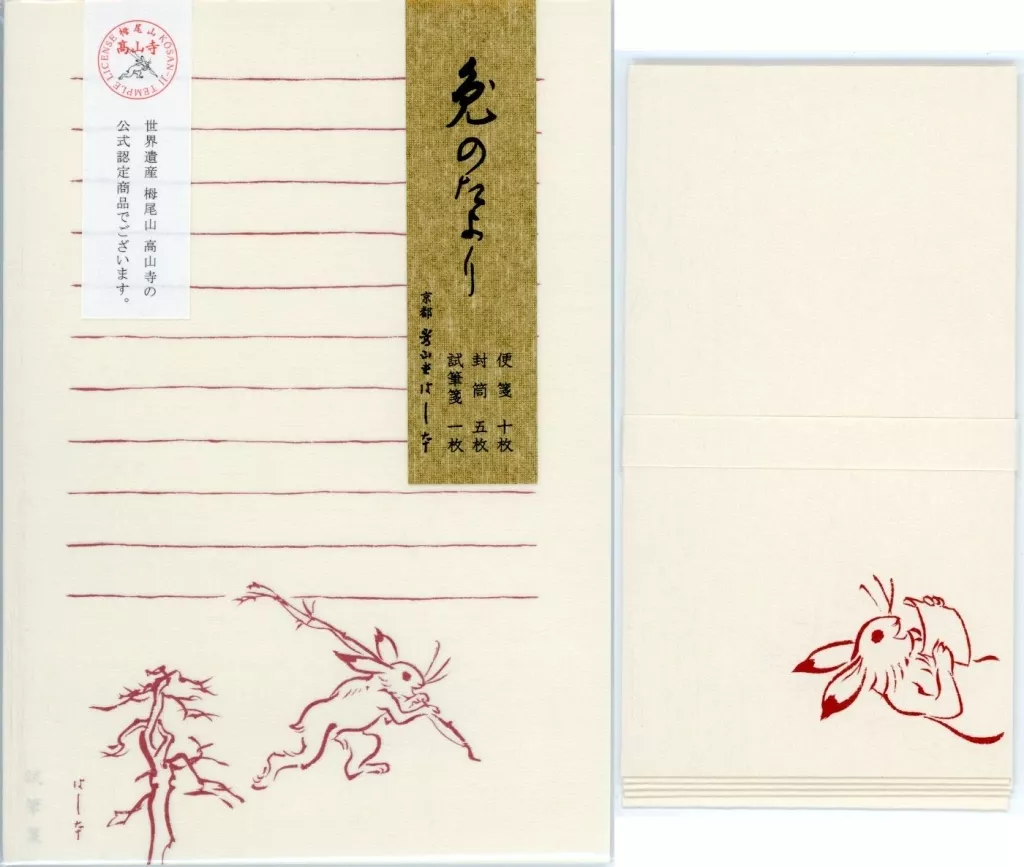 栂尾山
KŌSAN-JI TEMPLE LICENSE
高山寺
世界遺産 栂尾山 高山寺の
公式認定商品でございます。
兎のたより
便箋 十枚
封筒 五枚
試筆箋 一枚
京都 嵩山堂はし本
はし本
試筆箋